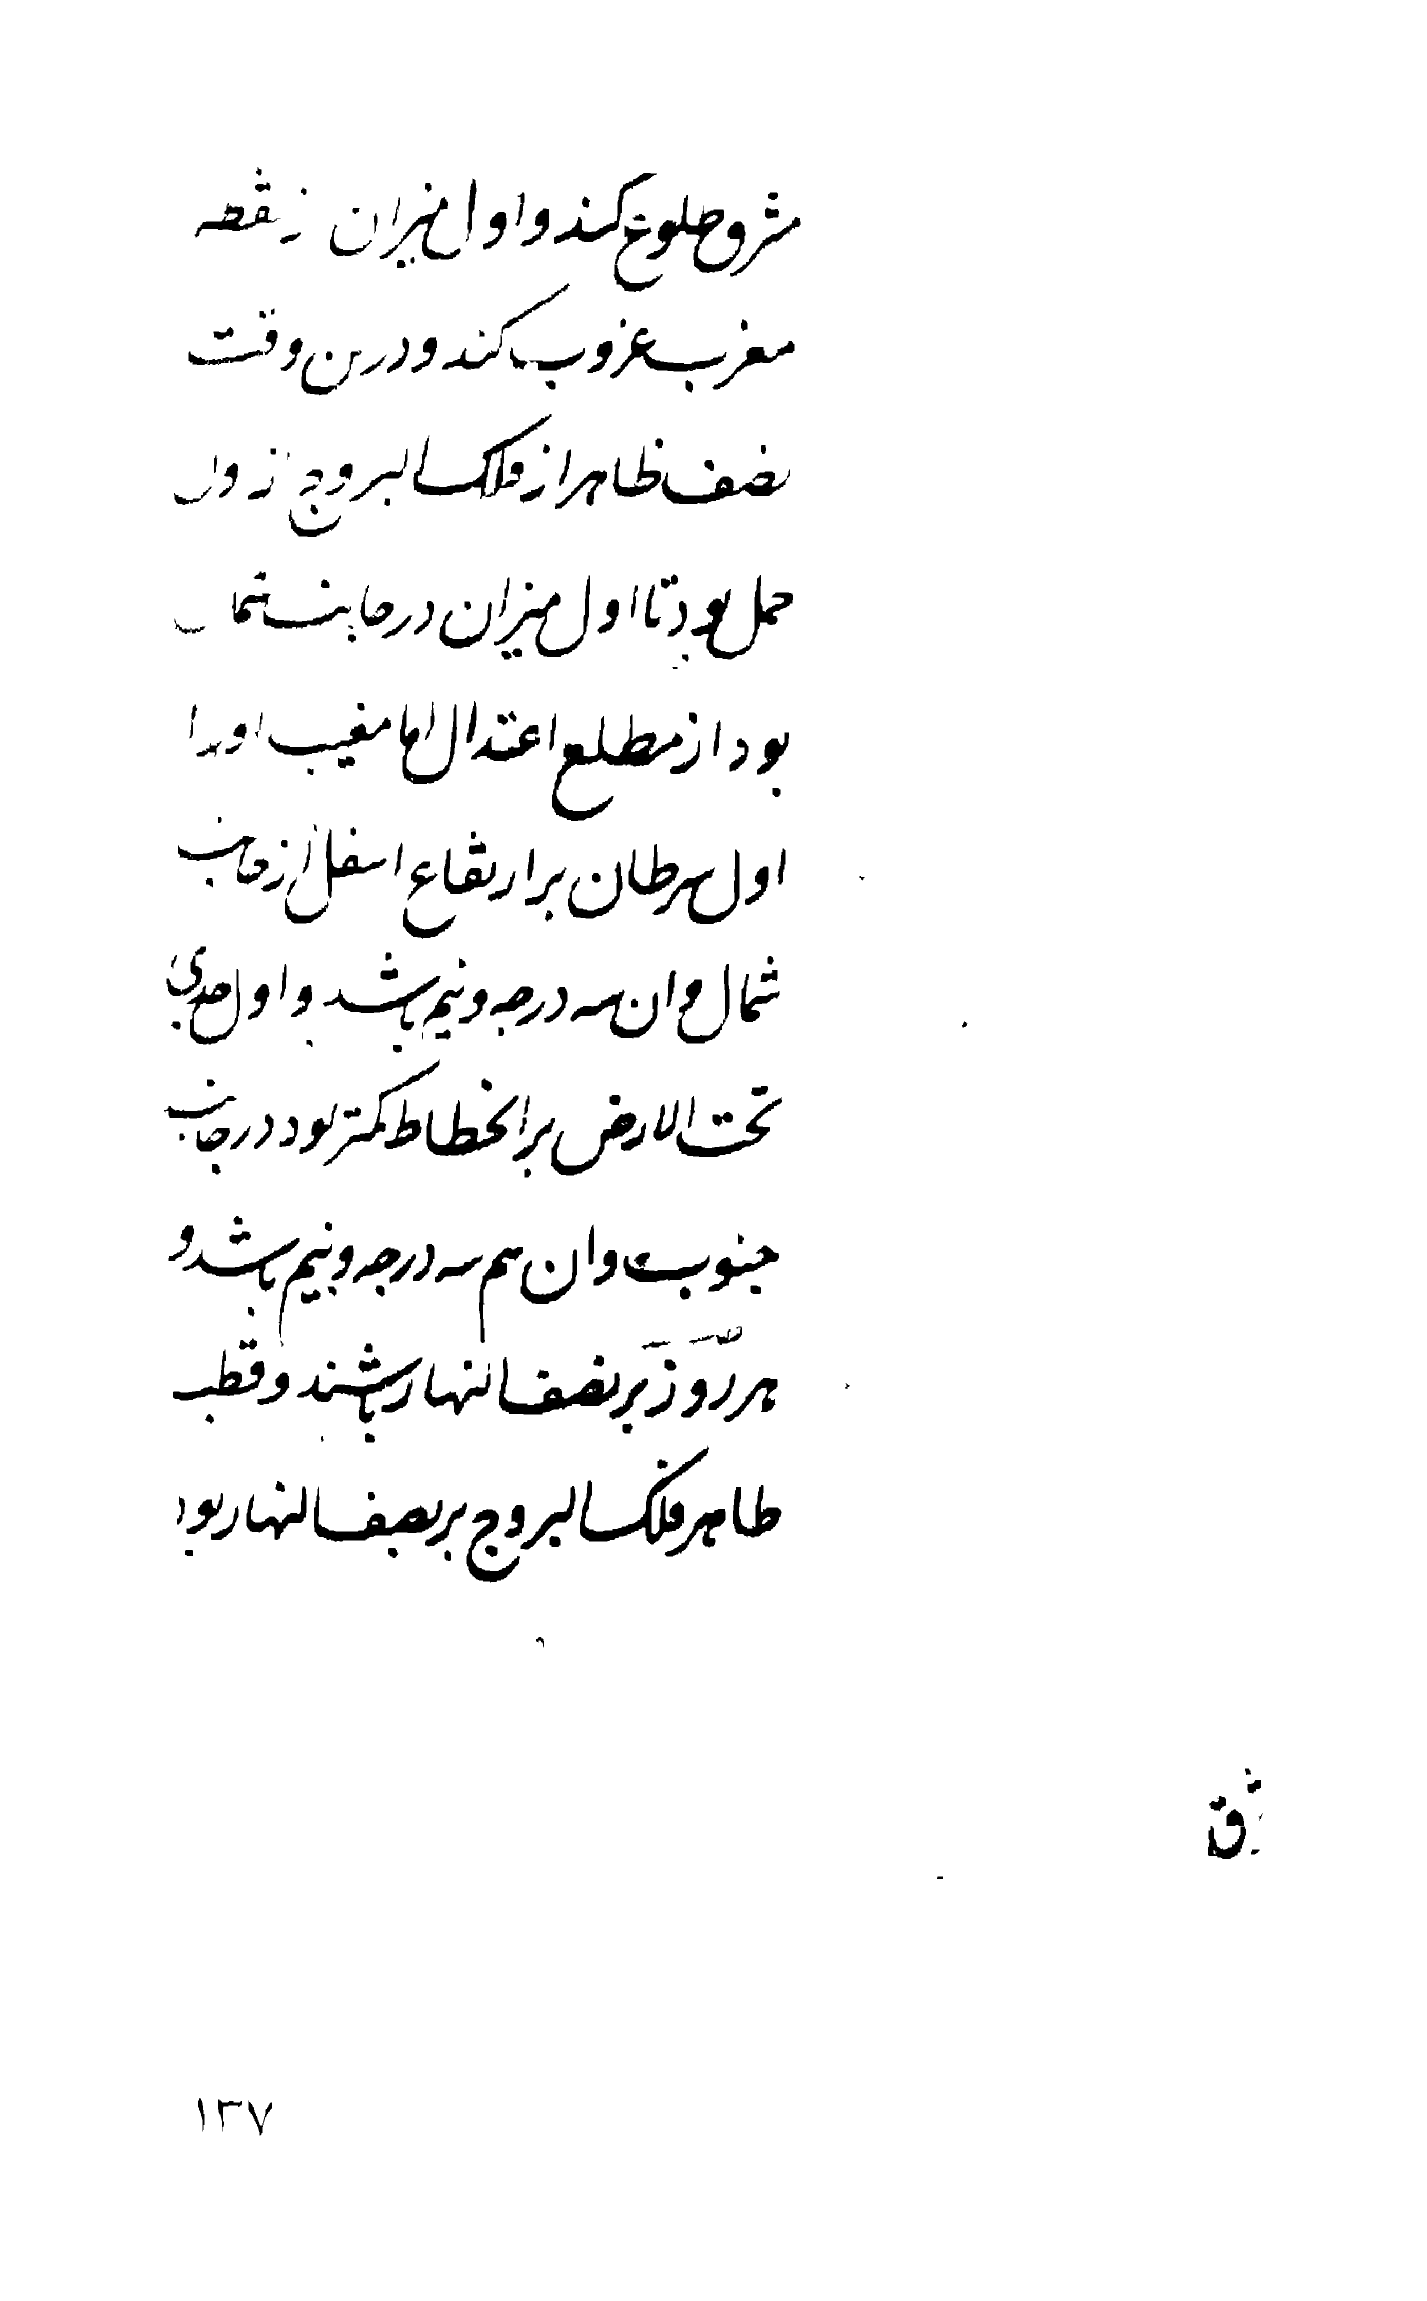 مشرق طلوع کند و اول میزان ز نقطه
مغرب غروب کند و درین وقت
نصف ظاهر از فلک البروج از اول
حمل بود تا اول میزان در جانب شمال
بود از مطلع اعتدال اما مغیب او را
اول سرطان بر ارتفاع اسفل از جانب
شمال و ان سه درجه و نیم باشد و اول جدی
تحت الارض بر انحطاط کمتر بود در جانب
جنوب و ان هم سه درجه و نیم باشد و
هر دو بر نصف النهار باشند و قطب
ظاهر فلک البروج بر نصف النهار بود
ق
۱۳۷